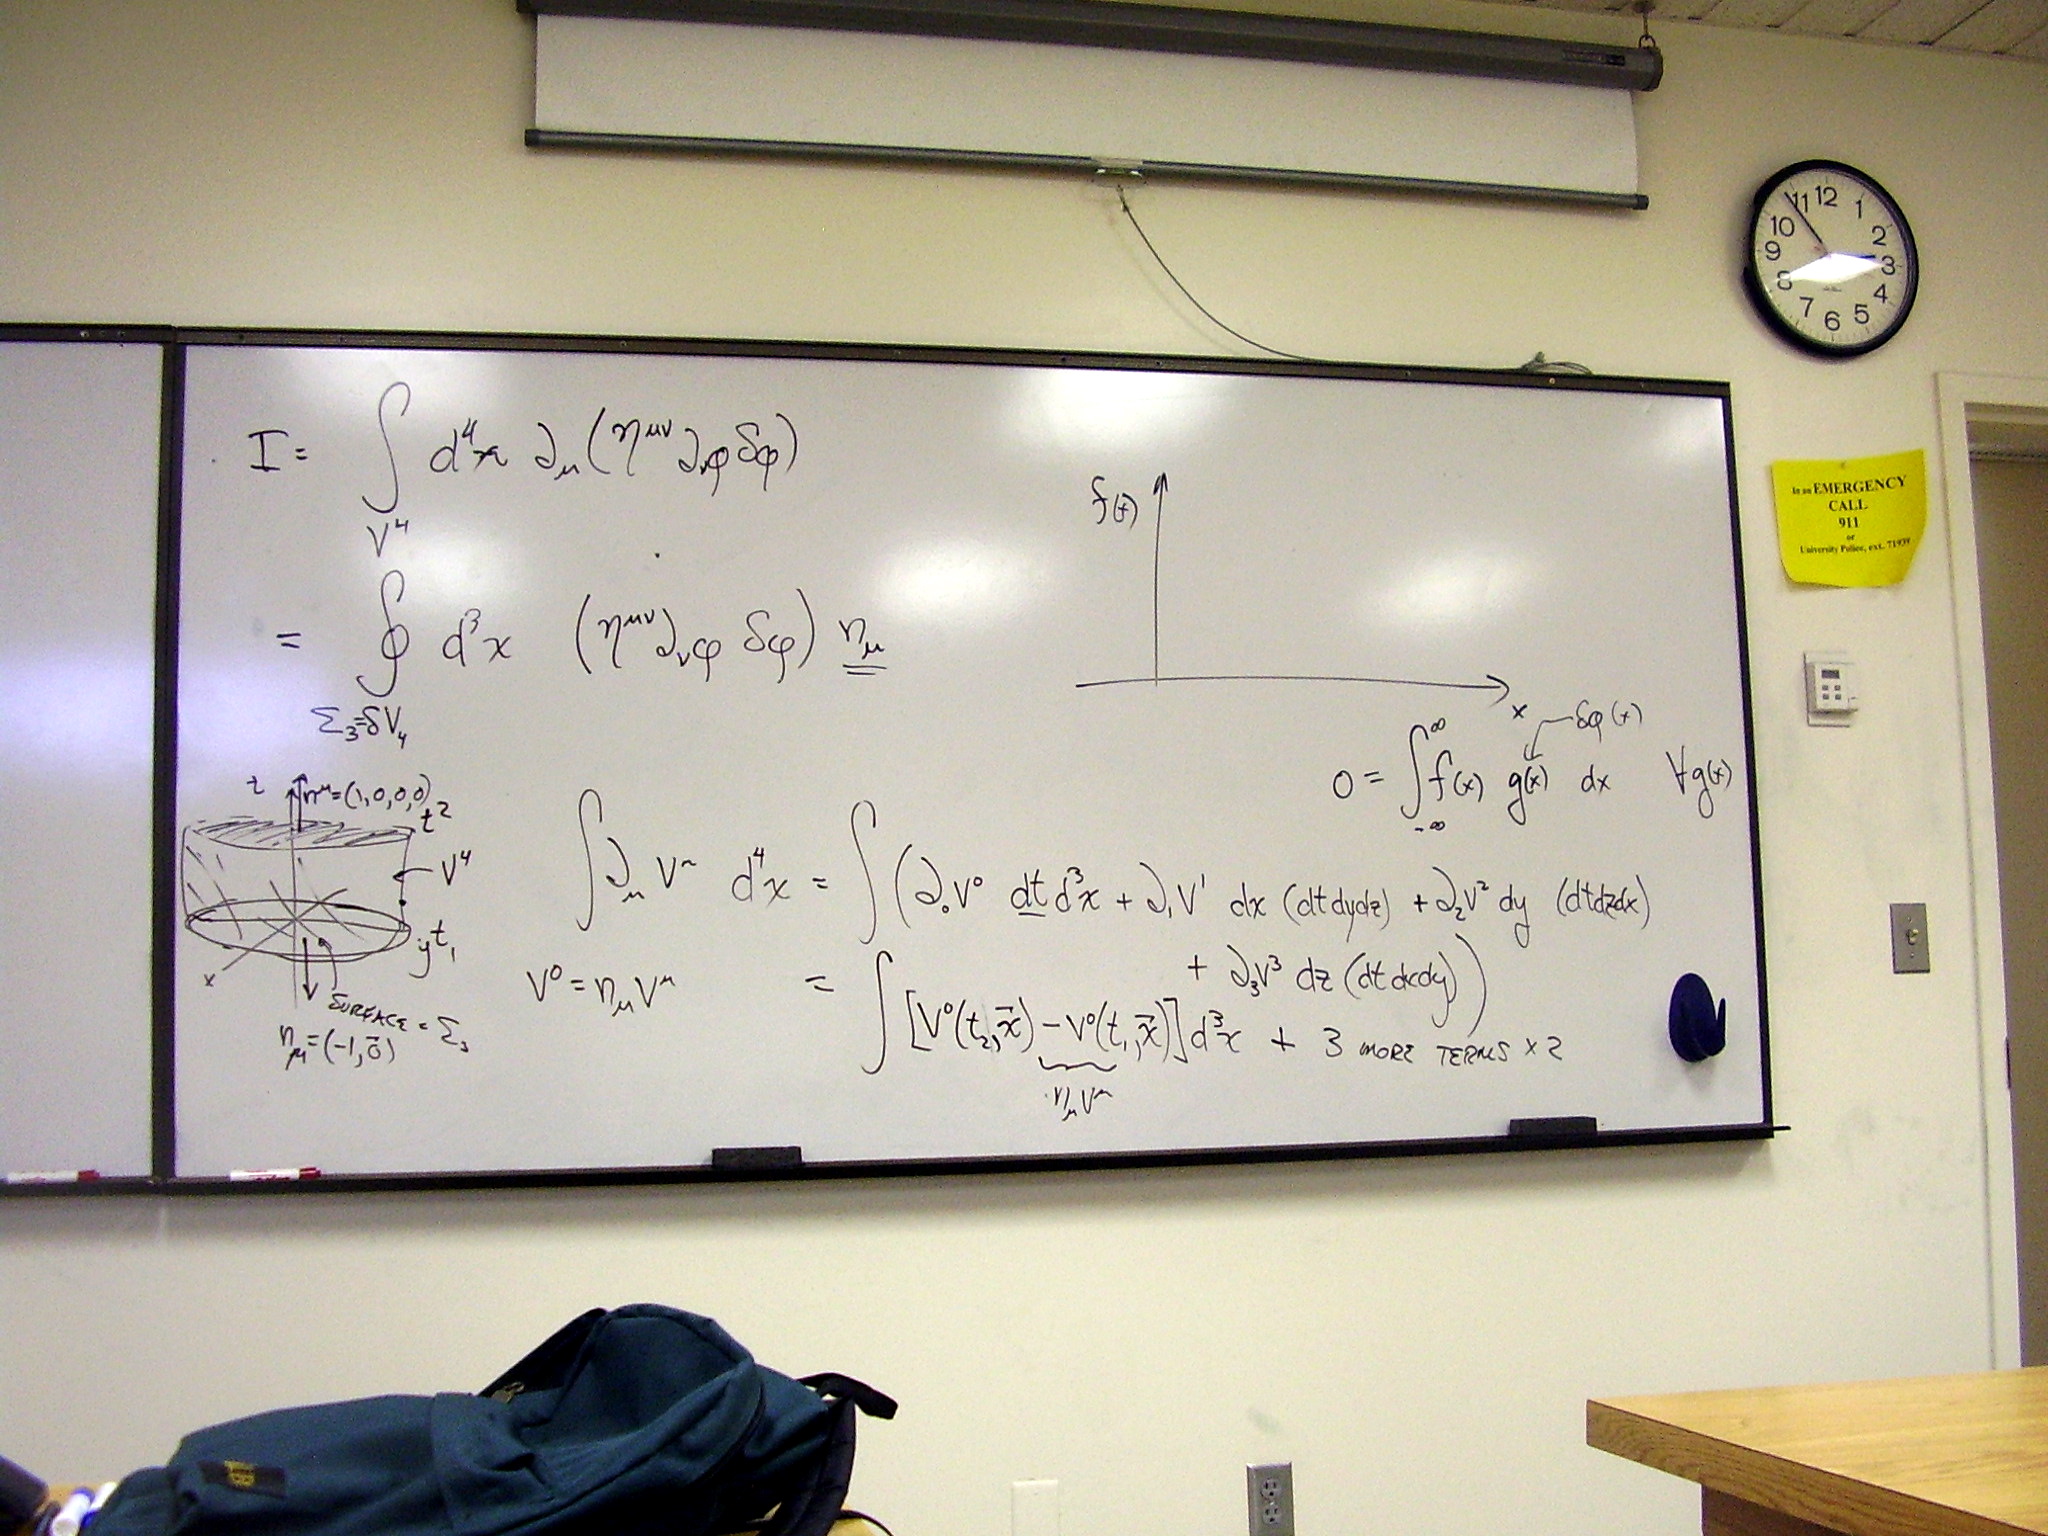 I = ∫ d⁴x ∂_μ(η^{μν} ∂_νφ δφ)
V⁴
= ∮ d³x (η^{μν}∂_νφ δφ) n_μ
Σ₃=δV₄
f(x)
x
δφ(x)
0 = ∫_{-∞}^{∞} f(x) g(x) dx ∀g(x)
z n^μ=(1,0,0,0)
t2
V⁴
y t₁
x
SURFACE = Σ₃
n_μ=(-1,0⃗)
∫∂_μ V^μ d⁴x = ∫(∂₀V⁰ dt d³x + ∂₁V¹ dx (dtdydz) + ∂₂V² dy (dtdzdx)
+ ∂₃V³ dz (dtdxdy))
V⁰ = n_μV^μ
= ∫[V⁰(t₂,x⃗) - V⁰(t₁,x⃗)]d³x + 3 MORE TERMS × 2
n_μV^μ
12
1
2
3
4
5
6
7
8
9
10
11
In an EMERGENCY
CALL
911
or
University Police, ext. 71939